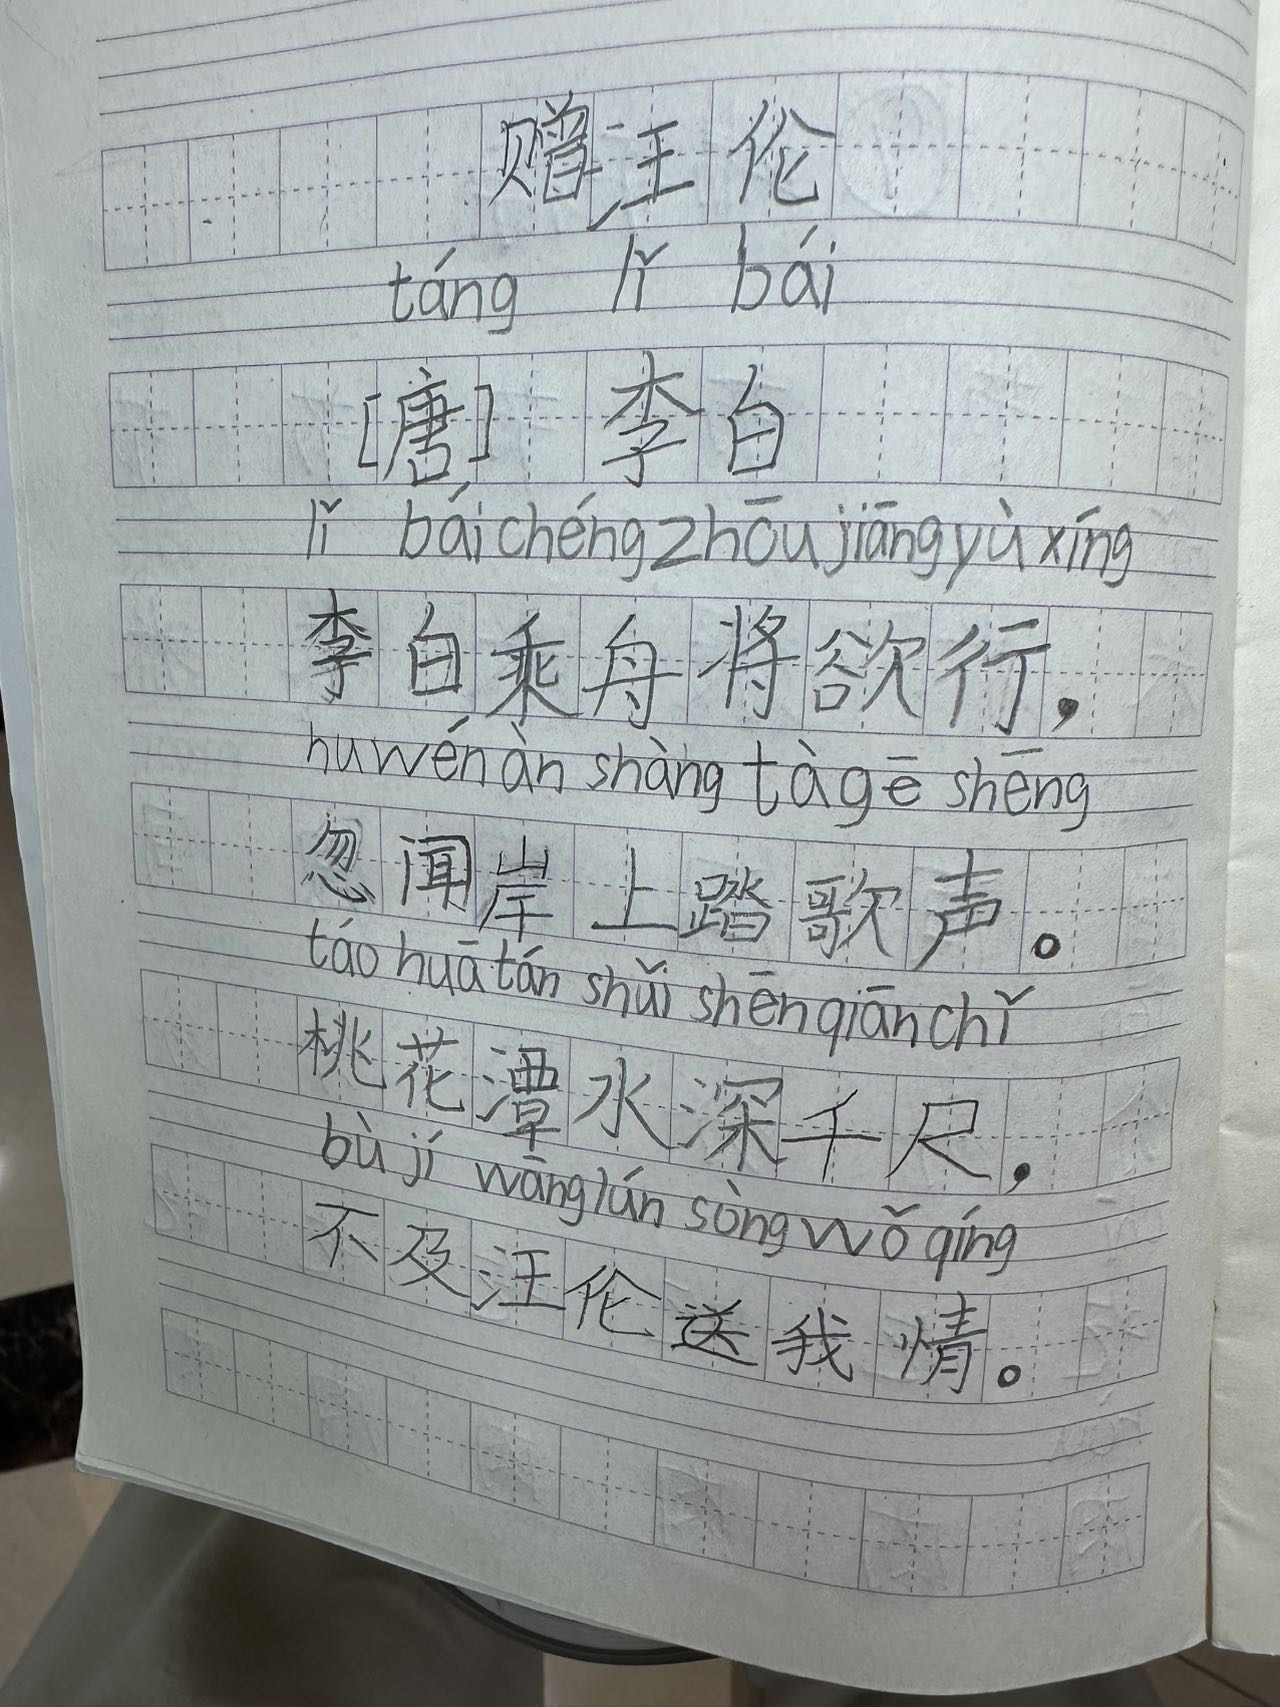 赠汪伦
táng lǐ bái
[唐] 李白
lǐ bái chéng zhōu jiāng yù xíng
李白乘舟将欲行，
hu wén àn shàng tà gē shēng
忽闻岸上踏歌声。
táo huā tán shuǐ shēn qiān chǐ
桃花潭水深千尺，
bù jí wāng lún sòng wǒ qíng
不及汪伦送我情。